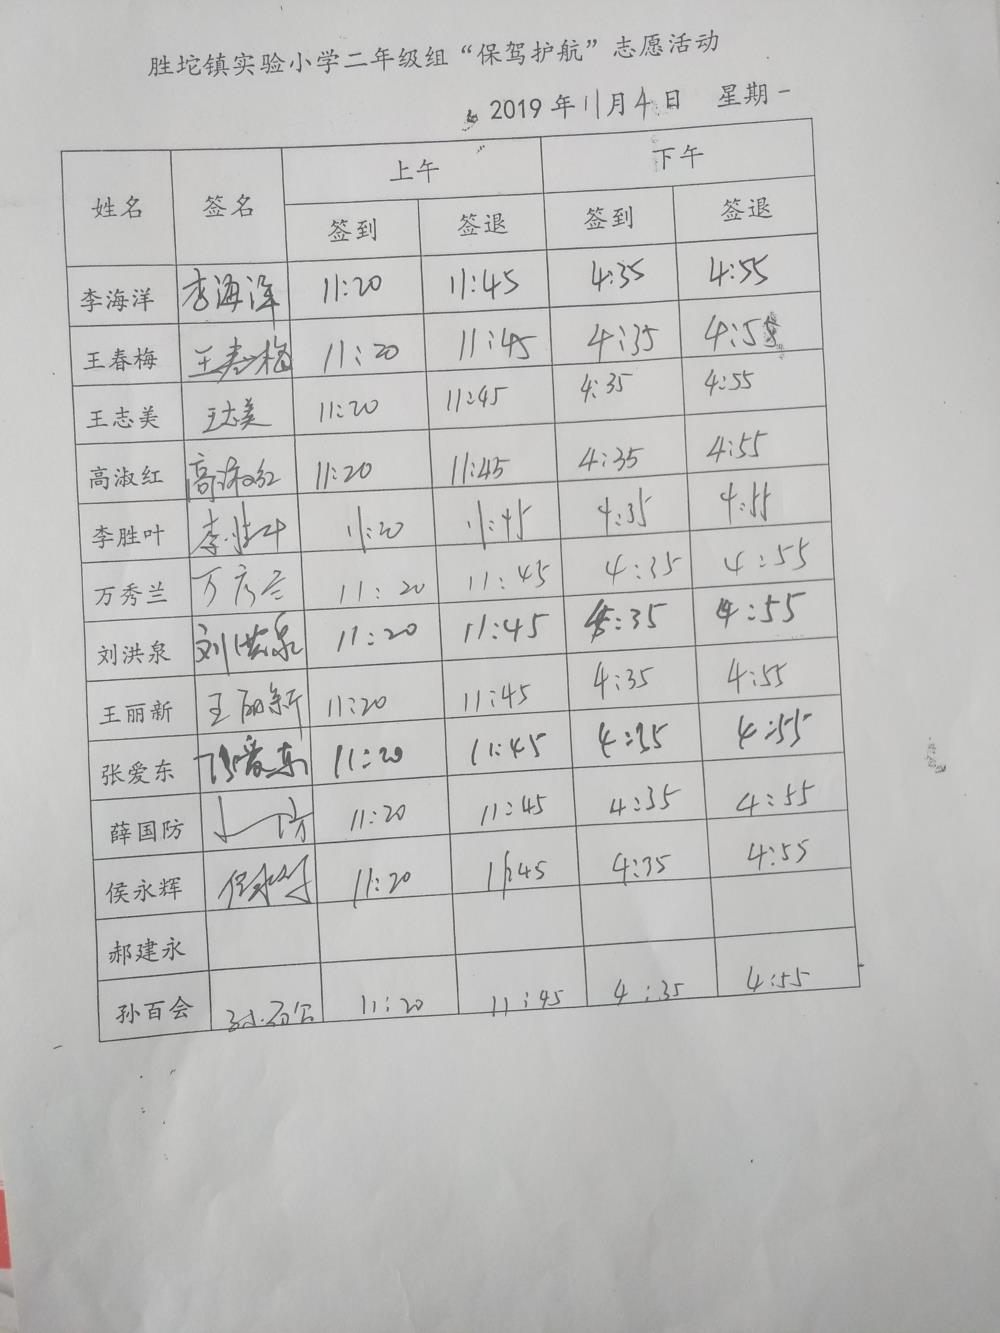 胜坨镇实验小学二年级组“保驾护航”志愿活动
2019年11月4日 星期一
姓名 签名 上午 下午
签到 签退 签到 签退
李海洋 李海洋 11:20 11:45 4:35 4:55
王春梅 王春梅 11:20 11:45 4:35 4:55
王志美 王志美 11:20 11:45 4:35 4:55
高淑红 高淑红 11:20 11:45 4:35 4:55
李胜叶 李胜叶 11:20 11:45 4:35 4:55
万秀兰 万秀兰 11:20 11:45 4:35 4:55
刘洪泉 刘洪泉 11:20 11:45 4:35 4:55
王丽新 王丽新 11:20 11:45 4:35 4:55
张爱东 张爱东 11:20 11:45 4:35 4:55
薛国防 11:20 11:45 4:35 4:55
侯永辉 侯永辉 11:20 11:45 4:35 4:55
郝建永
孙百会 孙百会 11:20 11:45 4:35 4:55